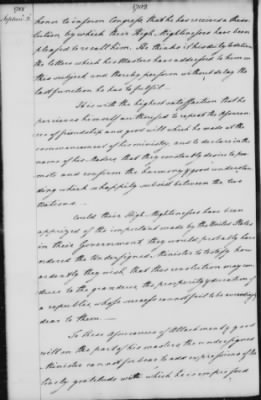 1788
1788
Septem. 5.
honor to inform Congress that he has received a Reso-
lution by which their High Mightinesses have been
pleased to recall him. He thinks it his duty to deliver
the letters which his Masters have addressed to them on
this subject and thereby perform without delay the
last function he has to fulfil.—
It is with the highest satisfaction that he
perceives himself authorised to repeat the Assuran-
ces of friendship and good will which he made at the
commencement of his ministry, and to declare in the
name of his Masters that they constantly desire to pro-
mote and confirm the harmony & good understan-
ding which so happily subsist between the two
Nations.—
Could their High Mightinesses have been
apprized of the important made by the United States
in their Government they would probably have
ordered the undersigned Minister to testify how
ardently they wish that this resolution may con-
duce to the grandeur, the prosperity & duration of
a republic, whose success cannot fail to be exceedingly
dear to them.—
To these assurances of Attachment & good
will on the part of his masters the undersigned
Minister cannot forbear to add expressions of the
lively gratitude with which he is impressed